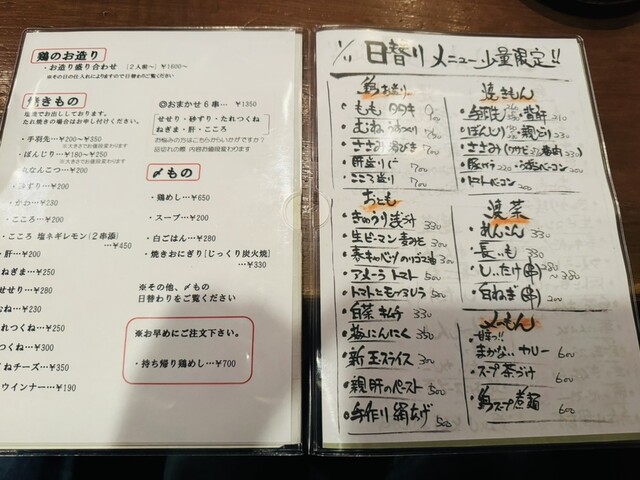 鶏のお造り
・お造り盛り合わせ (2人前〜) ¥1600〜
※その日の仕入れによりますので日替わりご覧ください
焼きもの
塩焼でお出ししております。
たれ焼きの場合はお申し付けください。
・手羽先…¥200〜¥350
※大きさでお値段変わります
ぼんじり…¥180〜¥250
※大きさでお値段変わります
なんこつ…¥200
ずり…¥200
・かわ…¥230
・こころ…¥200
・こころ 塩ネギレモン(2串添)
…¥450
・肝…¥200
ねぎま…¥250
せせり…¥280
むね…¥250
れつくね…¥250
くねチーズ…¥350
ウインナー…¥190
◎おまかせ6串… ¥1350
せせり・砂ずり・たれつくね
ねぎま・肝・こころ
お悩みの方はこちらからいかがですか？
品切れの際 内容お値段変わります
〆もの
・鶏めし…¥650
・スープ…¥200
・白ごはん…¥280
・焼きおにぎり[じっくり炭火焼]
…¥330
※その他、〆もの
日替わりをご覧ください
※お早めにご注文下さい。
・持ち帰り鶏めし…¥700
日替り メニュー 少量限定!!
鶏お造り
・もも タタキ
・むね
・ささみ わさび 700
・肝造り 700
・こころ造り 700
おとも
・きゅうり 330
・生ピーマン 330
・春キャベツのリゴマ油 330
・アメーラ トマト 500
・トマトとモッツァレラ 500
・白菜 キムチ 350
・梅にんにく 350
・新玉スライス 300
・親肝のペースト 500
・手作り 絹あげ 500
焼きもん
・ささみ
・トマトベーコン
焼菜
・れんこん 330
・長いも 330
・しいたけ(串) 280〜380
・白ねぎ(串) 200
〆のもん
・
まかない カレー 600
・スープ茶づけ 600
・鶏スープ煮麺 600